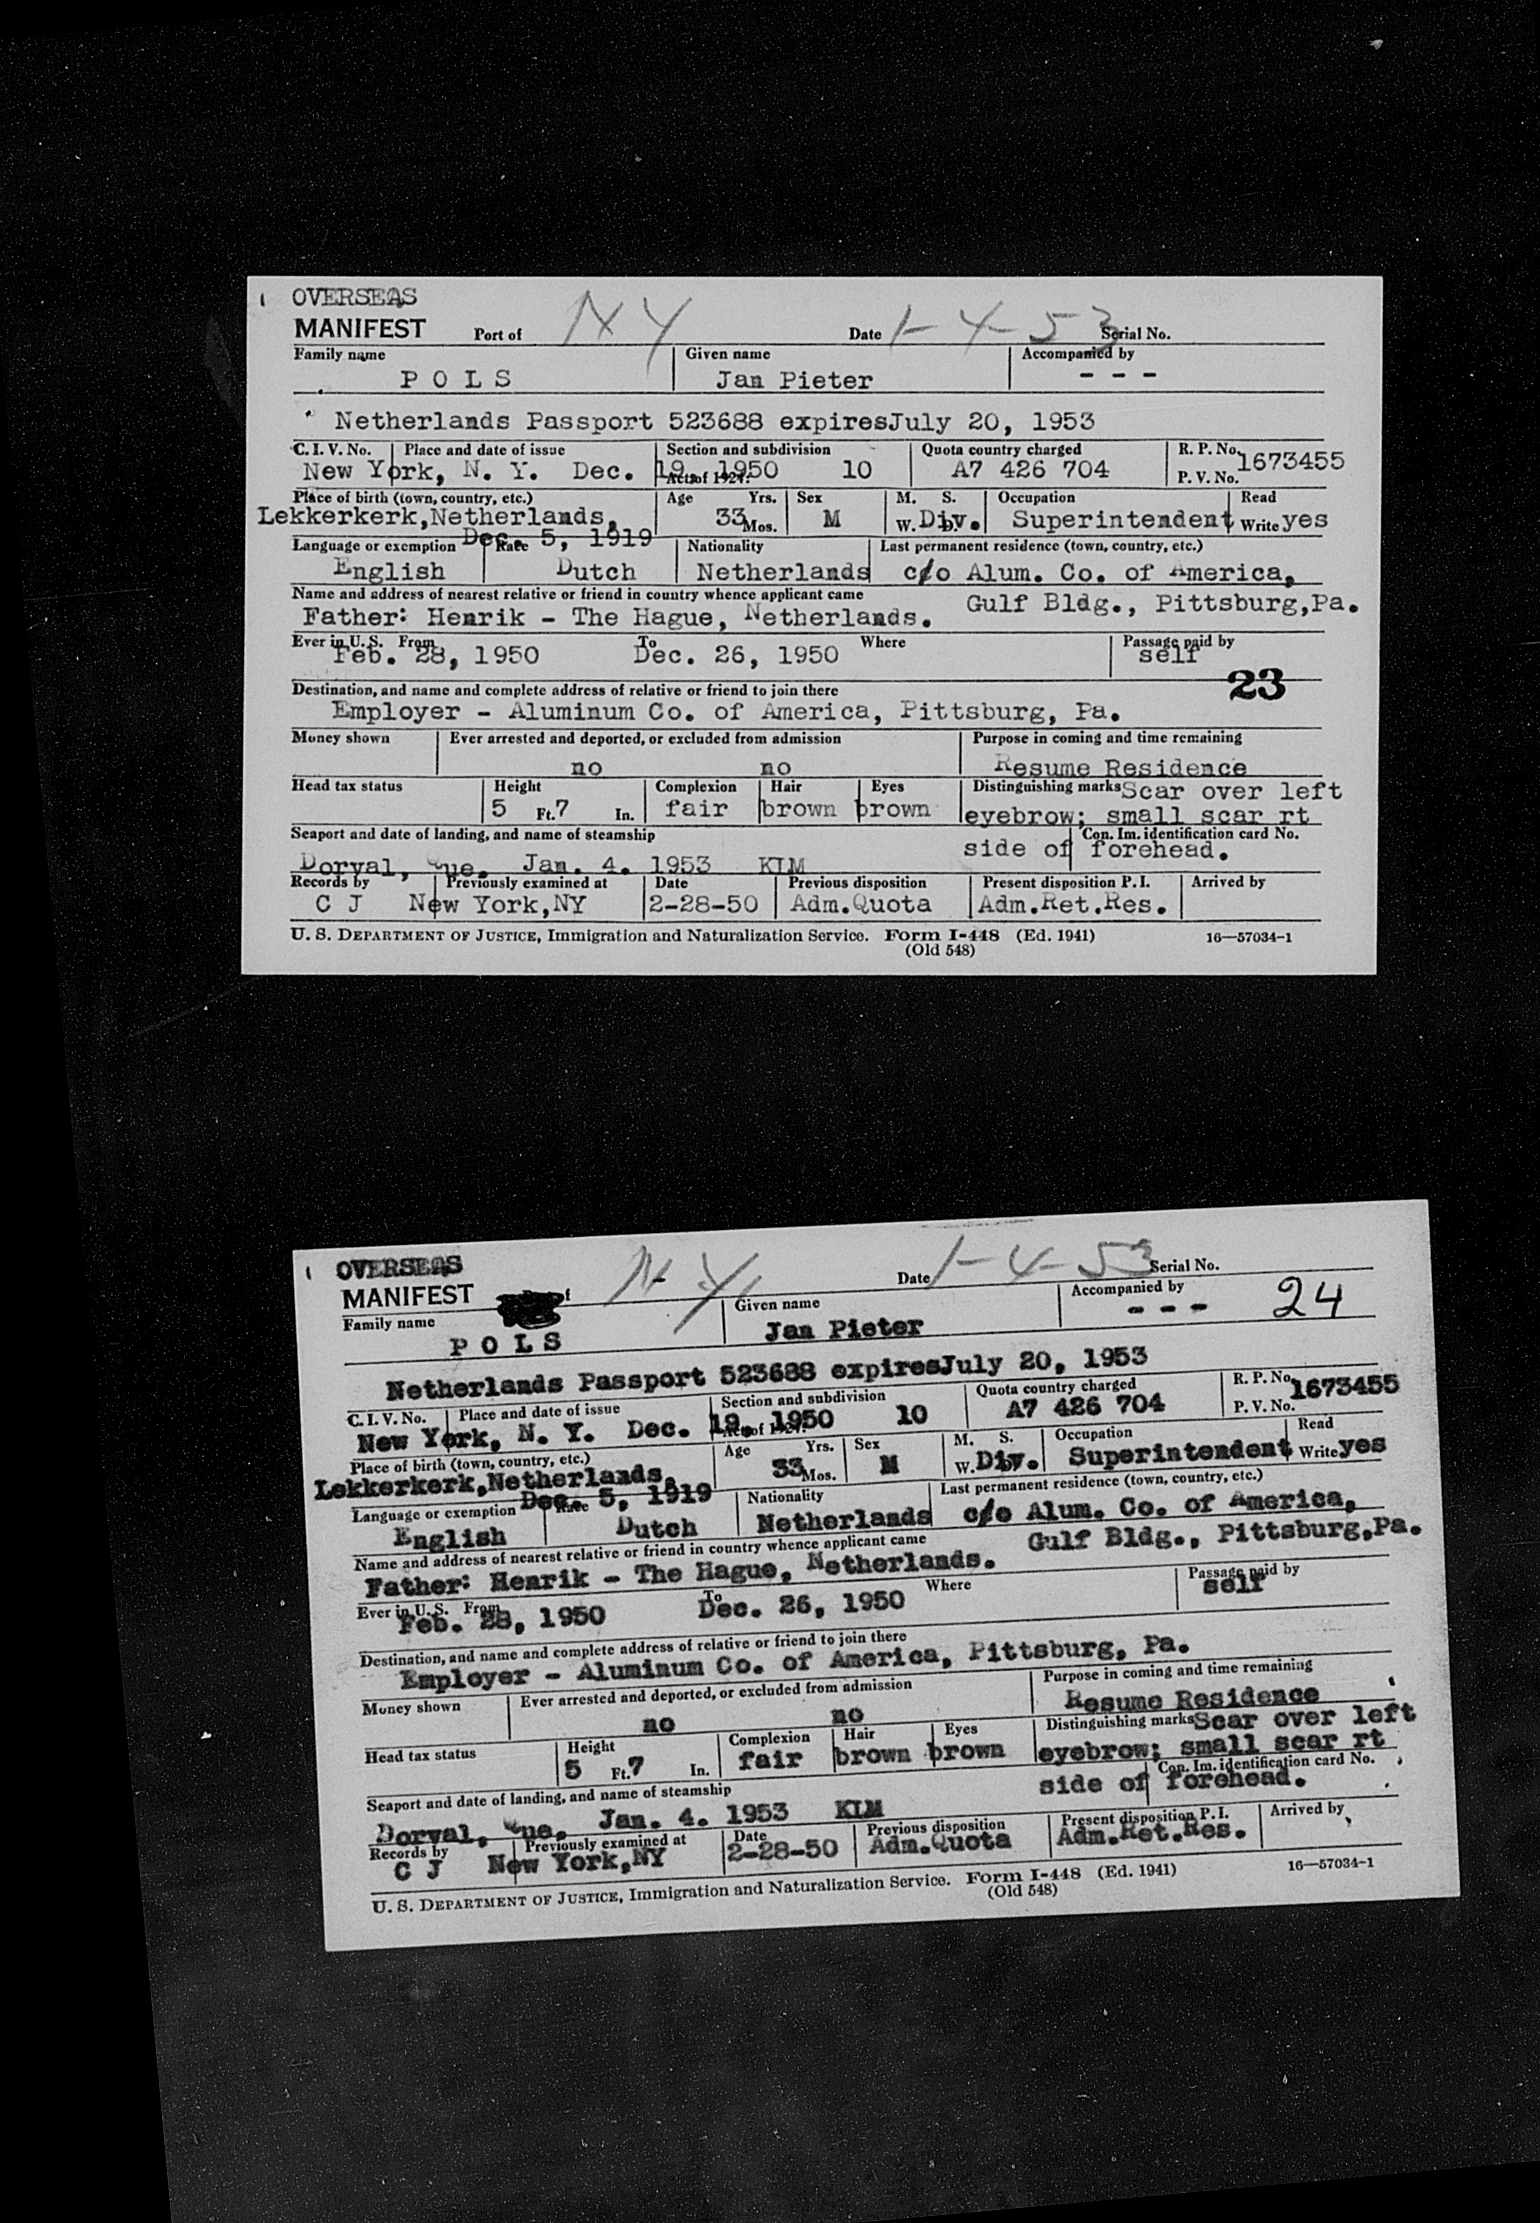 OVERSEAS
MANIFEST Port of NY Date 1-4-53 Serial No.
Family name Given name Accompanied by
POLS Jan Pieter - - -
Netherlands Passport 523688 expiresJuly 20, 1953
C. I. V. No. Place and date of issue Section and subdivision Quota country charged R. P. No. 1673455
New York, N. Y. Dec. 19, 1950 10 A7 426 704 P. V. No.
Act of 1924.
Place of birth (town, country, etc.) Age Yrs. Sex M. S. Occupation Read
Lekkerkerk,Netherlands, 33 Mos. M W. Div. D. Superintendent Write yes
Dec. 5, 1919
Language or exemption Race Nationality Last permanent residence (town, country, etc.)
English Dutch Netherlands c/o Alum. Co. of America,
Name and address of nearest relative or friend in country whence applicant came Gulf Bldg., Pittsburg,Pa.
Father: Henrik - The Hague, Netherlands.
Ever in U. S. From To Where Passage paid by
Feb. 28, 1950 Dec. 26, 1950 self
23
Destination, and name and complete address of relative or friend to join there
Employer - Aluminum Co. of America, Pittsburg, Pa.
Money shown Ever arrested and deported, or excluded from admission Purpose in coming and time remaining
no no Resume Residence
Head tax status Height Complexion Hair Eyes Distinguishing marks Scar over left
5 Ft. 7 In. fair brown brown eyebrow; small scar rt
Seaport and date of landing, and name of steamship Con. Im. identification card No.
side of forehead.
Dorval, Que. Jan. 4. 1953 KLM
Records by Previously examined at Date Previous disposition Present disposition P. I. Arrived by
C J New York,NY 2-28-50 Adm.Quota Adm.Ret.Res.
U. S. DEPARTMENT OF JUSTICE, Immigration and Naturalization Service. Form I-448 (Ed. 1941) 16—57034-1
(Old 548)
OVERSEAS
MANIFEST N.Y. Date 1-4-53 Serial No.
Family name Given name Accompanied by
POLS Jan Pieter - - - 24
Netherlands Passport 523688 expiresJuly 20, 1953
C. I. V. No. Place and date of issue Section and subdivision Quota country charged R. P. No. 1673455
New York, N. Y. Dec. 19, 1950 10 A7 426 704 P. V. No.
Act of 1924.
Place of birth (town, country, etc.) Age Yrs. Sex M. S. Occupation Read
Lekkerkerk,Netherlands, 33 Mos. M W. Div. D. Superintendent Write yes
Dec. 5, 1919
Language or exemption Race Nationality Last permanent residence (town, country, etc.)
English Dutch Netherlands c/o Alum. Co. of America,
Name and address of nearest relative or friend in country whence applicant came Gulf Bldg., Pittsburg,Pa.
Father: Henrik - The Hague, Netherlands.
Ever in U. S. From To Where Passage paid by
Feb. 28, 1950 Dec. 26, 1950 self
Destination, and name and complete address of relative or friend to join there
Employer - Aluminum Co. of America, Pittsburg, Pa.
Money shown Ever arrested and deported, or excluded from admission Purpose in coming and time remaining
no no Resume Residence
Head tax status Height Complexion Hair Eyes Distinguishing marks Scar over left
5 Ft. 7 In. fair brown brown eyebrow; small scar rt
Seaport and date of landing, and name of steamship Con. Im. identification card No.
side of forehead.
Dorval, Que. Jan. 4. 1953 KLM
Records by Previously examined at Date Previous disposition Present disposition P. I. Arrived by
C J New York,NY 2-28-50 Adm.Quota Adm.Ret.Res.
U. S. DEPARTMENT OF JUSTICE, Immigration and Naturalization Service. Form I-448 (Ed. 1941) 16—57034-1
(Old 548)